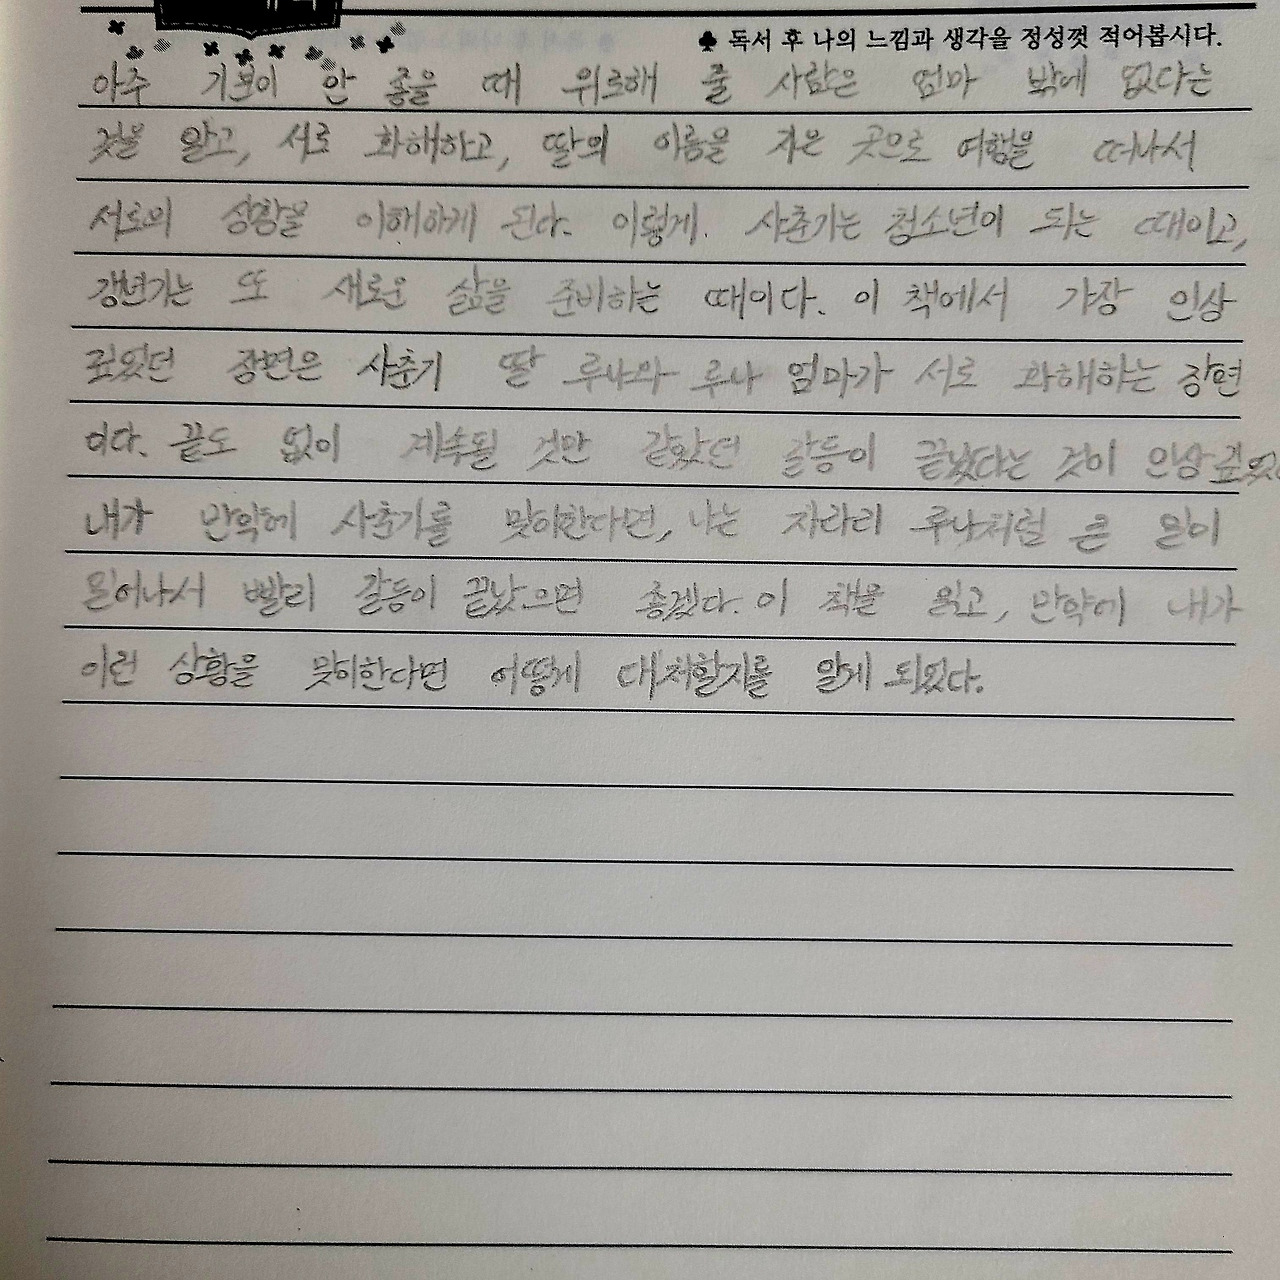 ♣ 독서 후 나의 느낌과 생각을 정성껏 적어봅시다.
아주 기분이 안 좋을 때 위로해 줄 사람은 엄마 밖에 없다는
것을 알고, 서로 화해하고, 딸의 이름을 지은 곳으로 여행을 떠나서
서로의 상황을 이해하게 된다. 이렇게. 사춘기는 청소년이 되는 때이고,
갱년기는 또 새로운 삶을 준비하는 때이다. 이 책에서 가장 인상
깊었던 장면은 사춘기 딸 루나와 루나 엄마가 서로 화해하는 장면
이다. 끝도 없이 계속될 것만 같았던 갈등이 끝났다는 것이 인상깊었다
내가 만약에 사춘기를 맞이한다면, 나는 차라리 루나처럼 큰 일이
일어나서 빨리 갈등이 끝났으면 좋겠다. 이 책을 읽고, 만약에 내가
이런 상황을 맞이한다면 어떻게 대처할지를 알게 되었다.